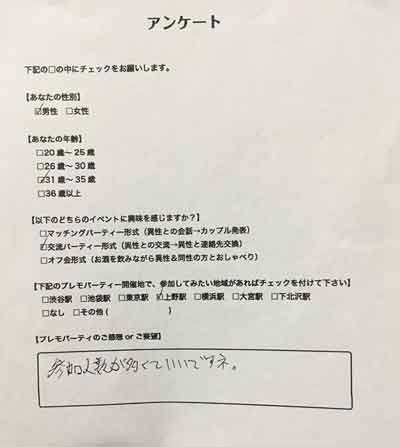 アンケート
下記の□の中にチェックをお願いします。
【あなたの性別】
☑男性 □女性
【あなたの年齢】
□20歳～25歳
□26歳～30歳
☑31歳～35歳
□36歳以上
【以下のどちらのイベントに興味を感じますか？】
□マッチングパーティー形式（異性との会話→カップル発表）
☑交流パーティー形式（異性との交流→異性と連絡先交換）
□オフ会形式（お酒を飲みながら異性＆同性の方とおしゃべり）
【下記のプレモパーティー開催地で、参加してみたい地域があればチェックを付けて下さい】
□渋谷駅 □池袋駅 □東京駅 ☑上野駅 □横浜駅 □大宮駅 □下北沢駅
□なし □その他（ ）
【プレモパーティのご感想 or ご要望】
参加人数が多くていいですネ。